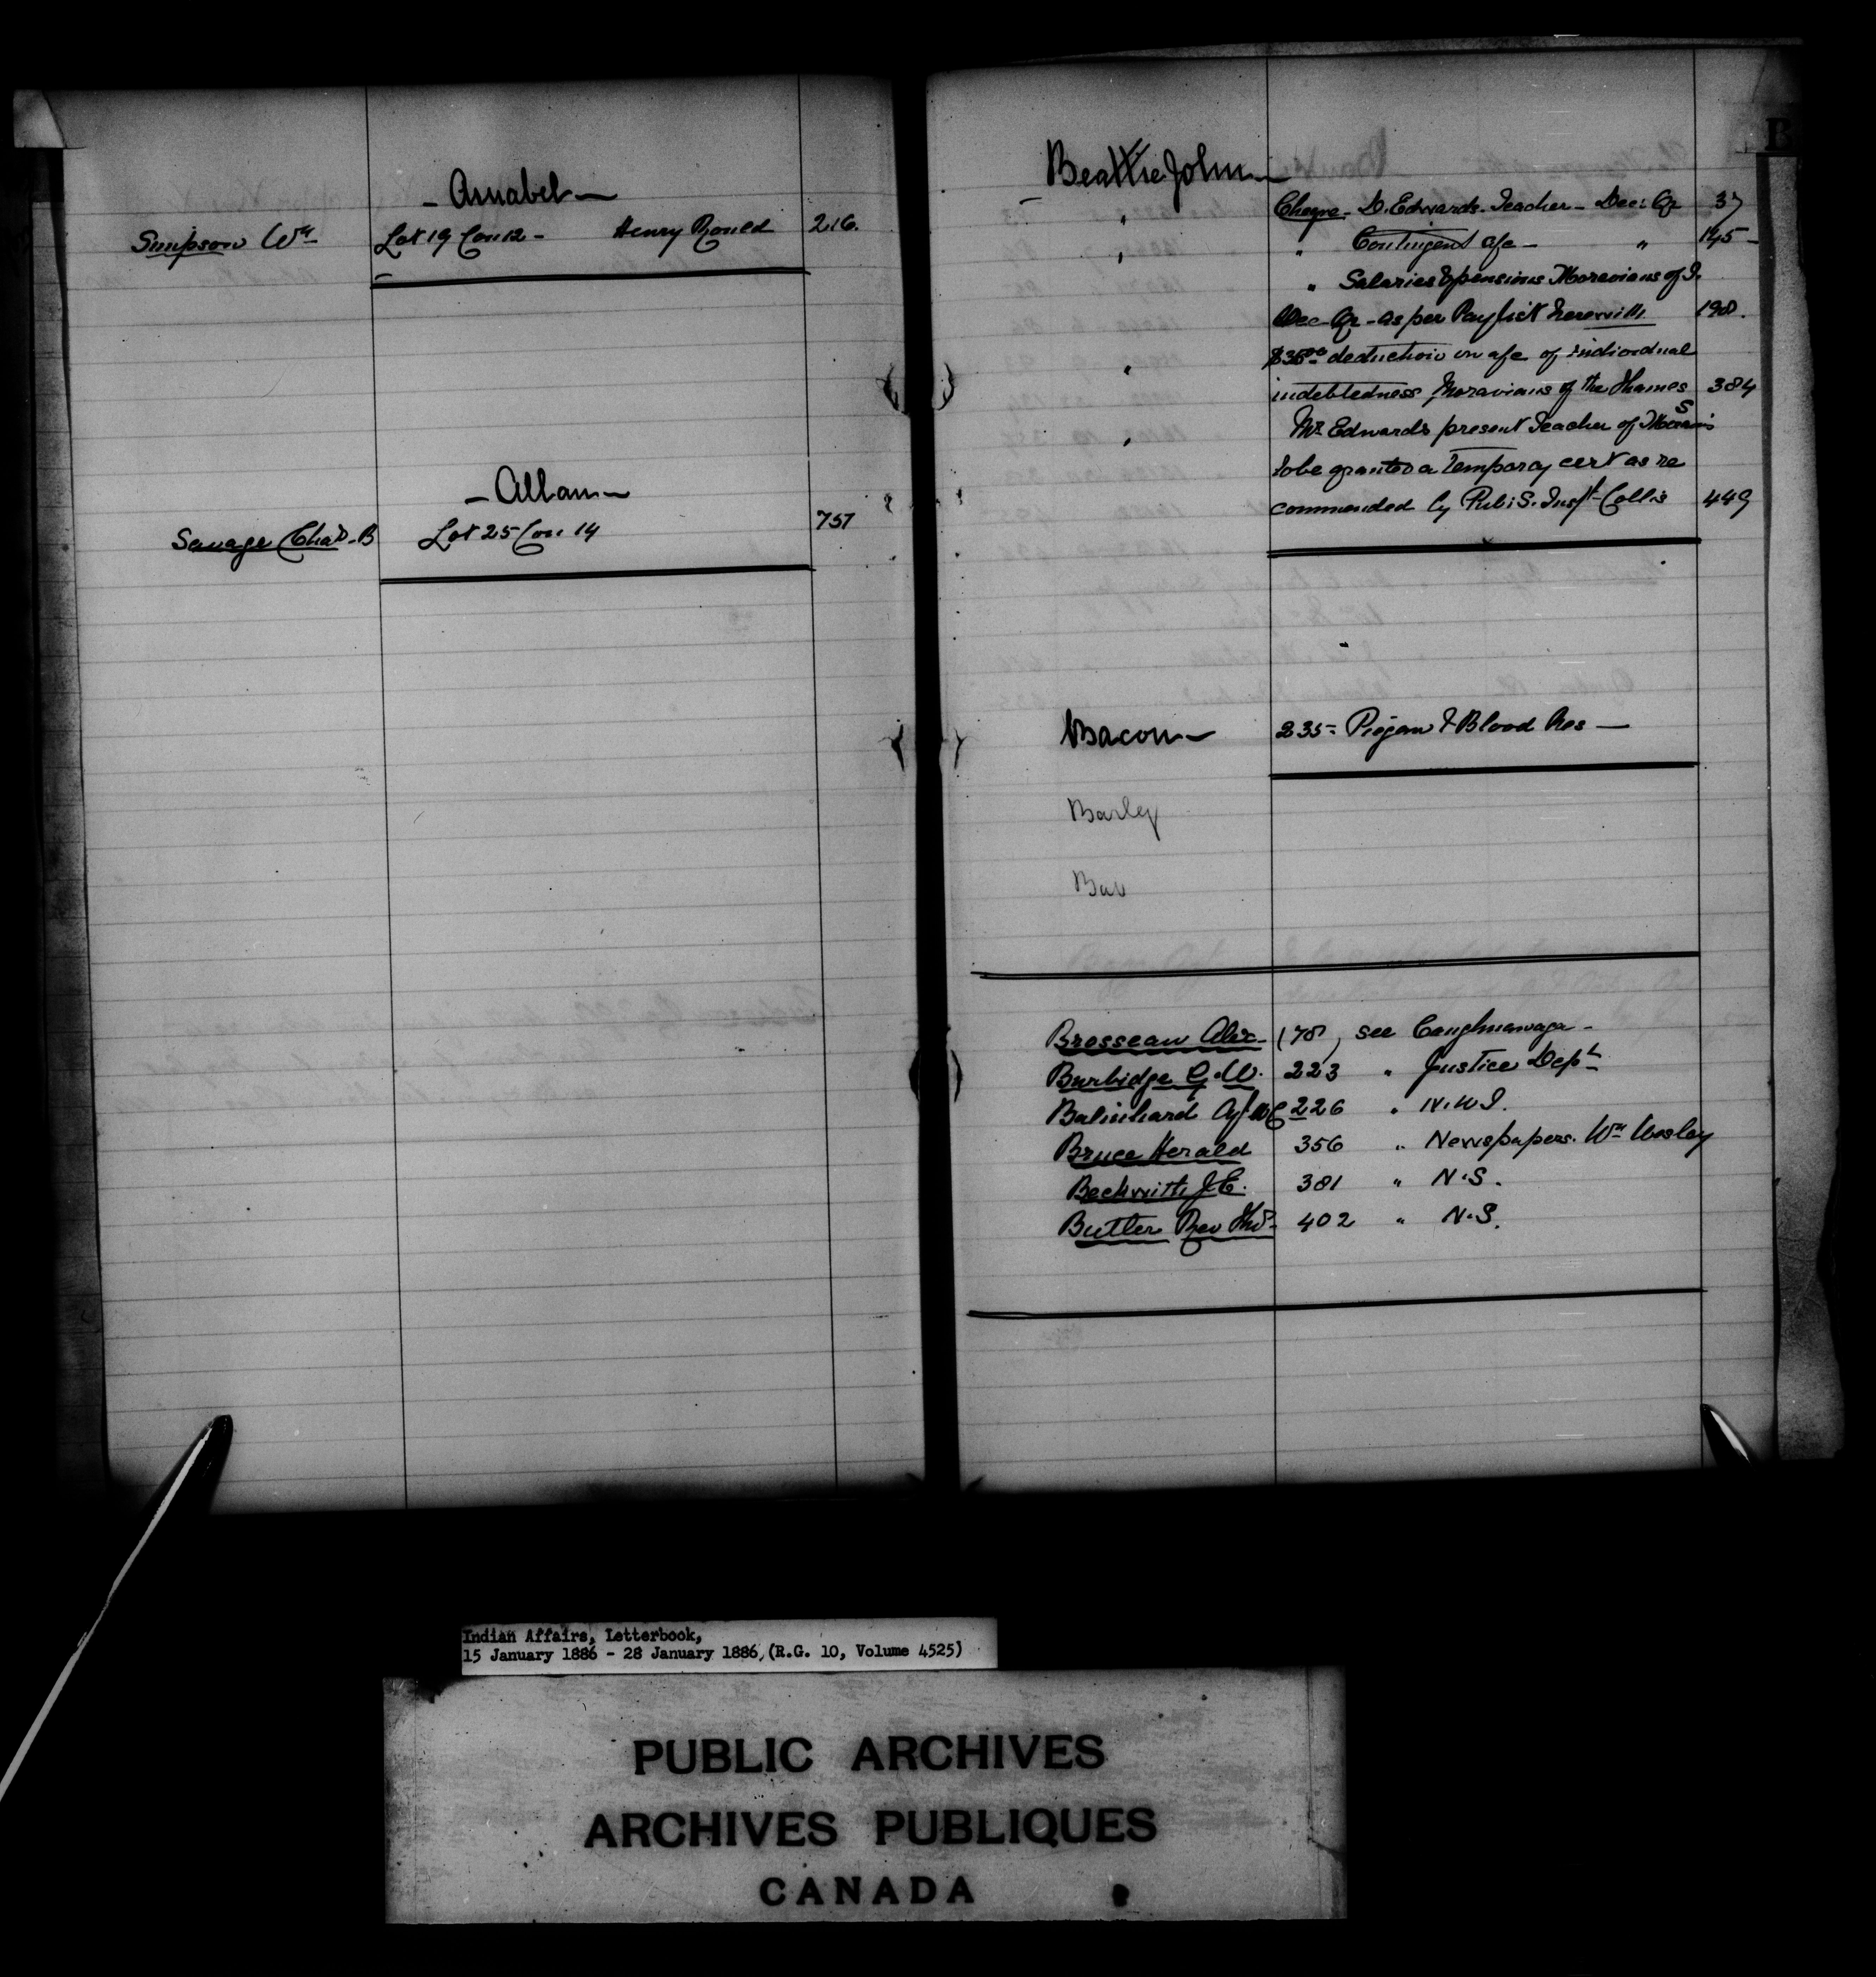 - Amabel -
Simpson Wm Lot 19 Con 12 - Henry Rould 216.
- Alban -
Savage Chas. B Lot 25 Con 14 757
B
Beattie John -
Cheque - D. Edwards. Teacher - Dec: Qr 37
" Contingent a/c - " 145 -
" Salaries & pensions Moravians of T.
Dec - Qr - as per Pay list herewith 198.
" $35.00 deduction on a/c of individual
indebtedness Moravians of the Thames 384
" Mr. Edwards present Teacher of Moravians
to be granted a temporay cert as re
commended by Pub: S. Inspt - Collis 449
Bacon - 235 - Piegan & Blood Res -
Barley
Bar
Brosseau Alex - 178, see Caughnawaga -
Burbidge G. W. 223 " Justice Dept
Balinhard 226 " N. W. T.
Bruce Herald 356 " Newspapers. Wm Wesley
Beckwith J. E. 381 " N. S.
Butler Rev Thos - 402 " N. S.
Indian Affairs, Letterbook,
15 January 1886 - 28 January 1886, (R.G. 10, Volume 4525)
PUBLIC ARCHIVES
ARCHIVES PUBLIQUES
CANADA